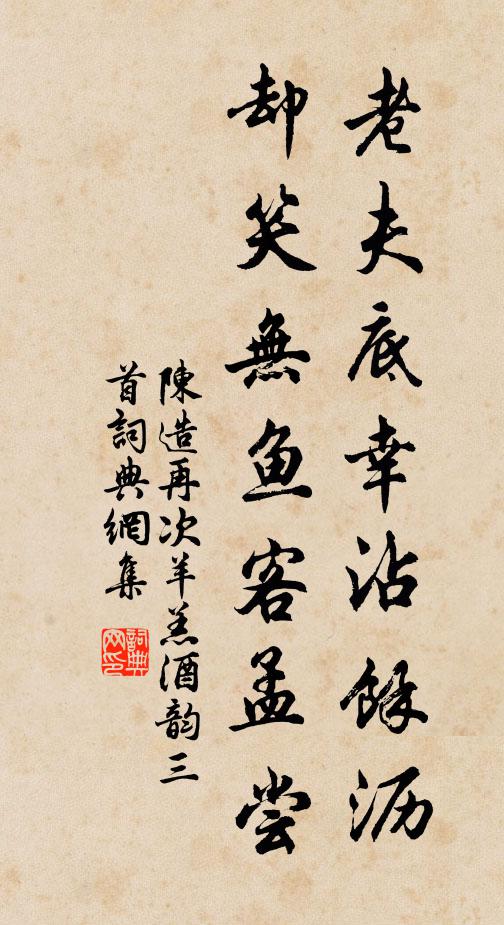 老夫底幸沾餘沥
却笑無鱼客孟尝
陳造再次羊羔酒韵三
首詞典網集
詞典
网印